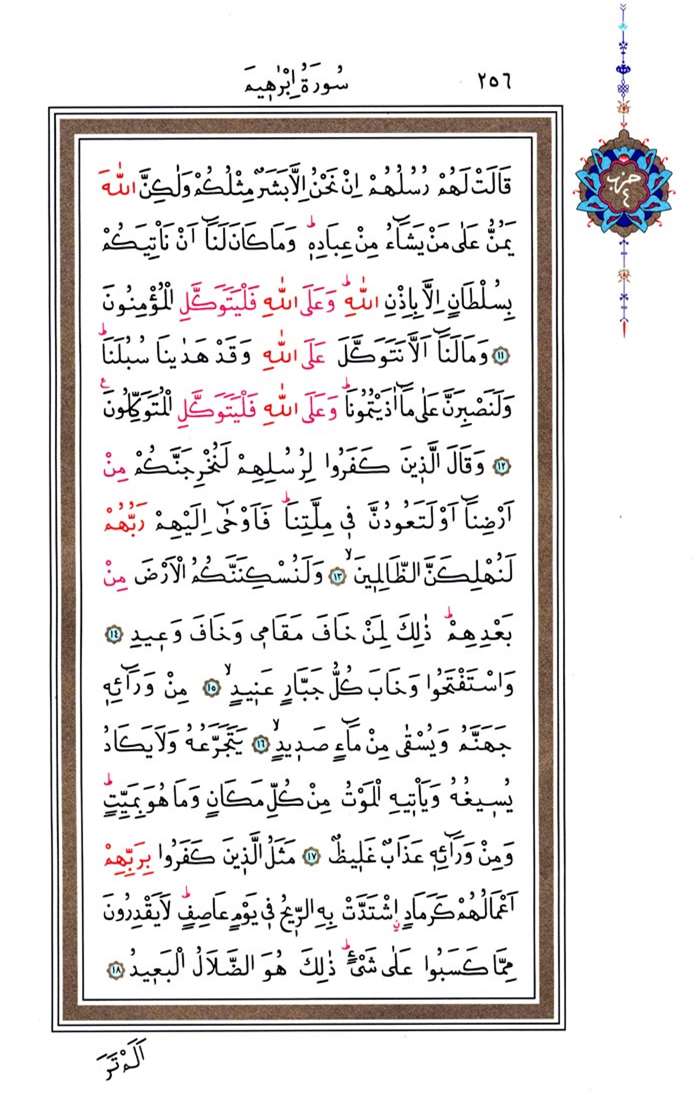 سُورَةُ اِبْرٰه۪يمَ
٢٥٦
حزب
٤
قَالَتْ لَهُمْ رُسُلُهُمْ اِنْ نَحْنُ اِلَّا بَشَرٌ مِثْلُكُمْ وَلٰكِنَّ اللّٰهَ
يَمُنُّ عَلٰى مَنْ يَشَٓاءُ مِنْ عِبَادِه۪ۜ وَمَا كَانَ لَنَٓا اَنْ نَأْتِيَكُمْ
بِسُلْطَانٍ اِلَّا بِاِذْنِ اللّٰهِۜ وَعَلَى اللّٰهِ فَلْيَتَوَكَّلِ الْمُؤْمِنُونَ
﴿١١﴾ وَمَا لَنَٓا اَلَّا نَتَوَكَّلَ عَلَى اللّٰهِ وَقَدْ هَدٰينَا سُبُلَنَاۜ
وَلَنَصْبِرَنَّ عَلٰى مَٓا اٰذَيْتُمُونَاۜ وَعَلَى اللّٰهِ فَلْيَتَوَكَّلِ الْمُتَوَكِّلُونَ۟
﴿١٢﴾ وَقَالَ الَّذ۪ينَ كَفَرُوا لِرُسُلِهِمْ لَنُخْرِجَنَّكُمْ مِنْ
اَرْضِنَٓا اَوْ لَتَعُودُنَّ ف۪ي مِلَّتِنَاۜ فَاَوْحٰٓى اِلَيْهِمْ رَبُّهُمْ
لَنُهْلِكَنَّ الظَّالِم۪ينَۙ ﴿١٣﴾ وَلَنُسْكِنَنَّكُمُ الْاَرْضَ مِنْ
بَعْدِهِمْۜ ذٰلِكَ لِمَنْ خَافَ مَقَام۪ي وَخَافَ وَع۪يدِ ﴿١٤﴾
وَاسْتَفْتَحُوا وَخَابَ كُلُّ جَبَّارٍ عَن۪يدٍۙ ﴿١٥﴾ مِنْ وَرَٓائِه۪
جَهَنَّمُ وَيُسْقٰى مِنْ مَٓاءٍ صَد۪يدٍۙ ﴿١٦﴾ يَتَجَرَّعُهُ وَلَا يَكَادُ
يُس۪يغُهُ وَيَأْت۪يهِ الْمَوْتُ مِنْ كُلِّ مَكَانٍ وَمَا هُوَ بِمَيِّتٍۜ
وَمِنْ وَرَٓائِه۪ عَذَابٌ غَل۪يظٌ ﴿١٧﴾ مَثَلُ الَّذ۪ينَ كَفَرُوا بِرَبِّهِمْ
اَعْمَالُهُمْ كَرَمَادٍۨ اشْتَدَّتْ بِهِ الرّ۪يحُ ف۪ي يَوْمٍ عَاصِفٍۜ لَا يَقْدِرُونَ
مِمَّا كَسَبُوا عَلٰى شَيْءٍۜ ذٰلِكَ هُوَ الضَّلَالُ الْبَع۪يدُ ﴿١٨﴾
اَلَمْ تَرَ